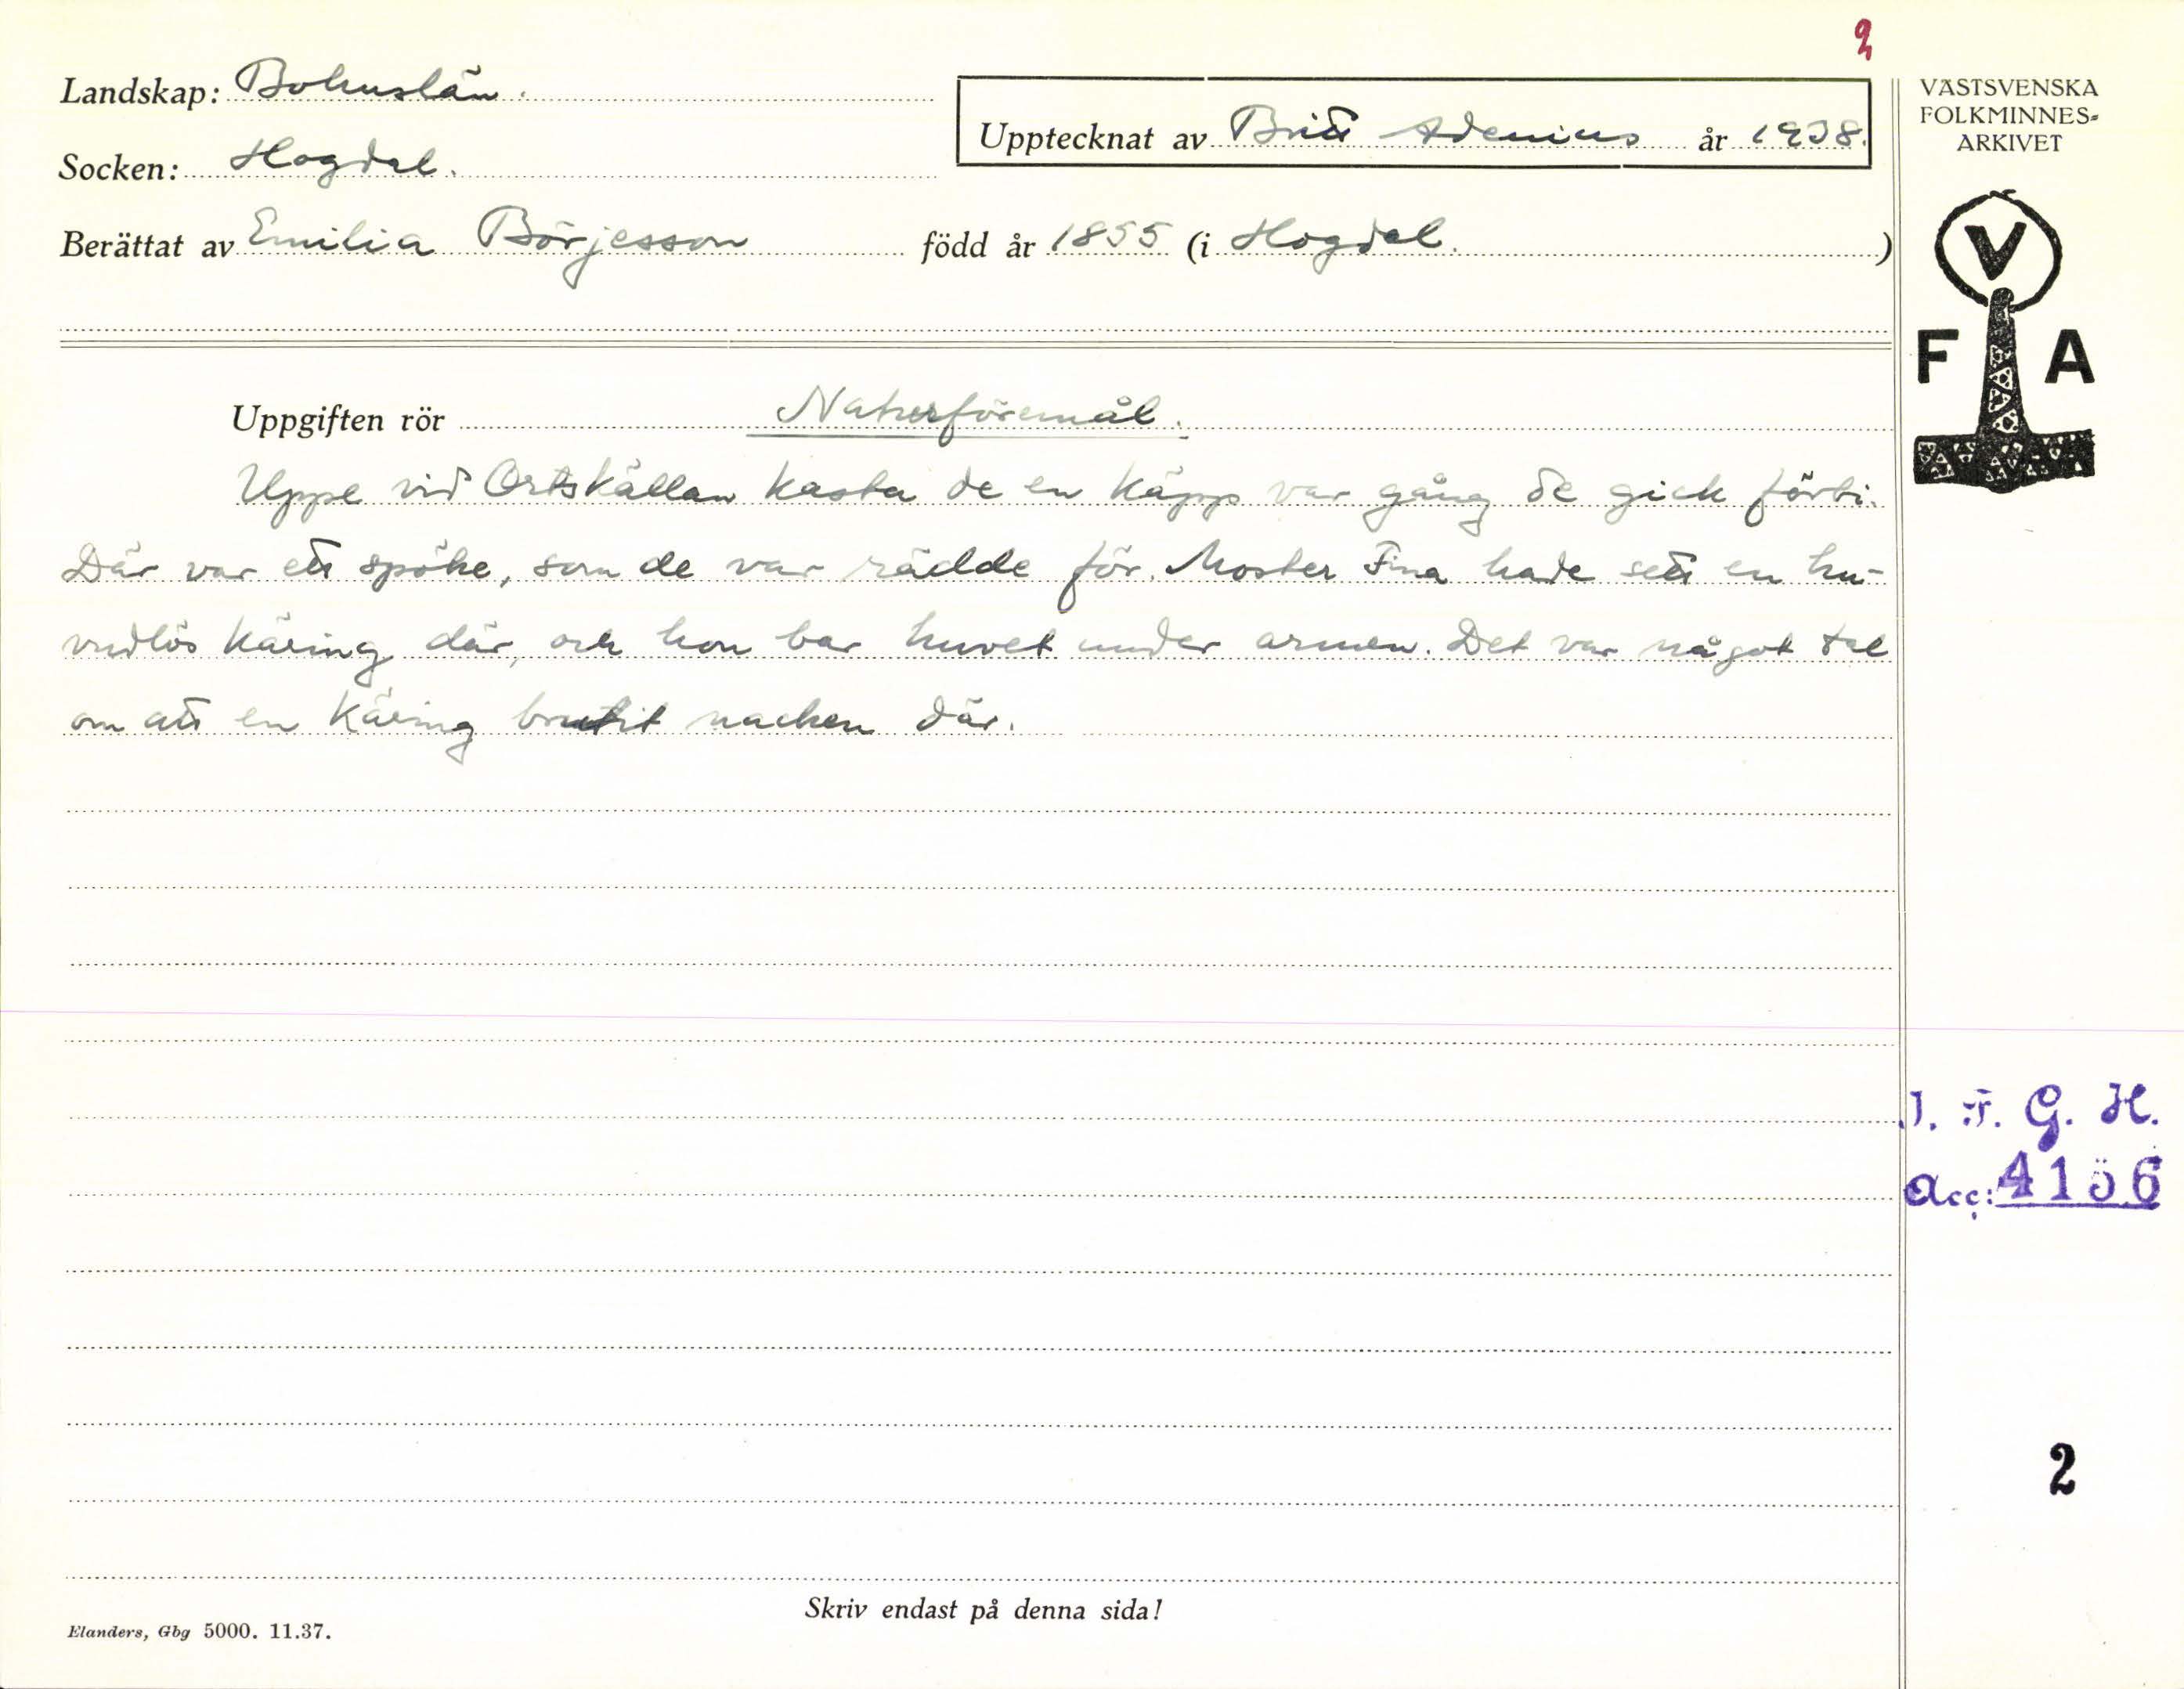 2
Landskap: Bohuslän.
Upptecknat av Britt Adenius år 1938.
Socken: Hogdal.
Berättat av Emilia Börjesson född år 1855 (i Hogdal.)
VÄSTSVENSKA
FOLKMINNES-
ARKIVET
V
F A
Uppgiften rör Naturföremål.
Uppe vid Ortskällan kasta de en käpp var gång de gick förbi.
Där var ett spöke, som de var rädde för. Moster Fina hade sett en hu-
vudlös käring där, och hon bar huvet under armen. Det var något tal
om att en käring brutit nacken där.
I. F. G. H.
Acc: 4156
2
Skriv endast på denna sida!
Elanders, Gbg 5000. 11.37.